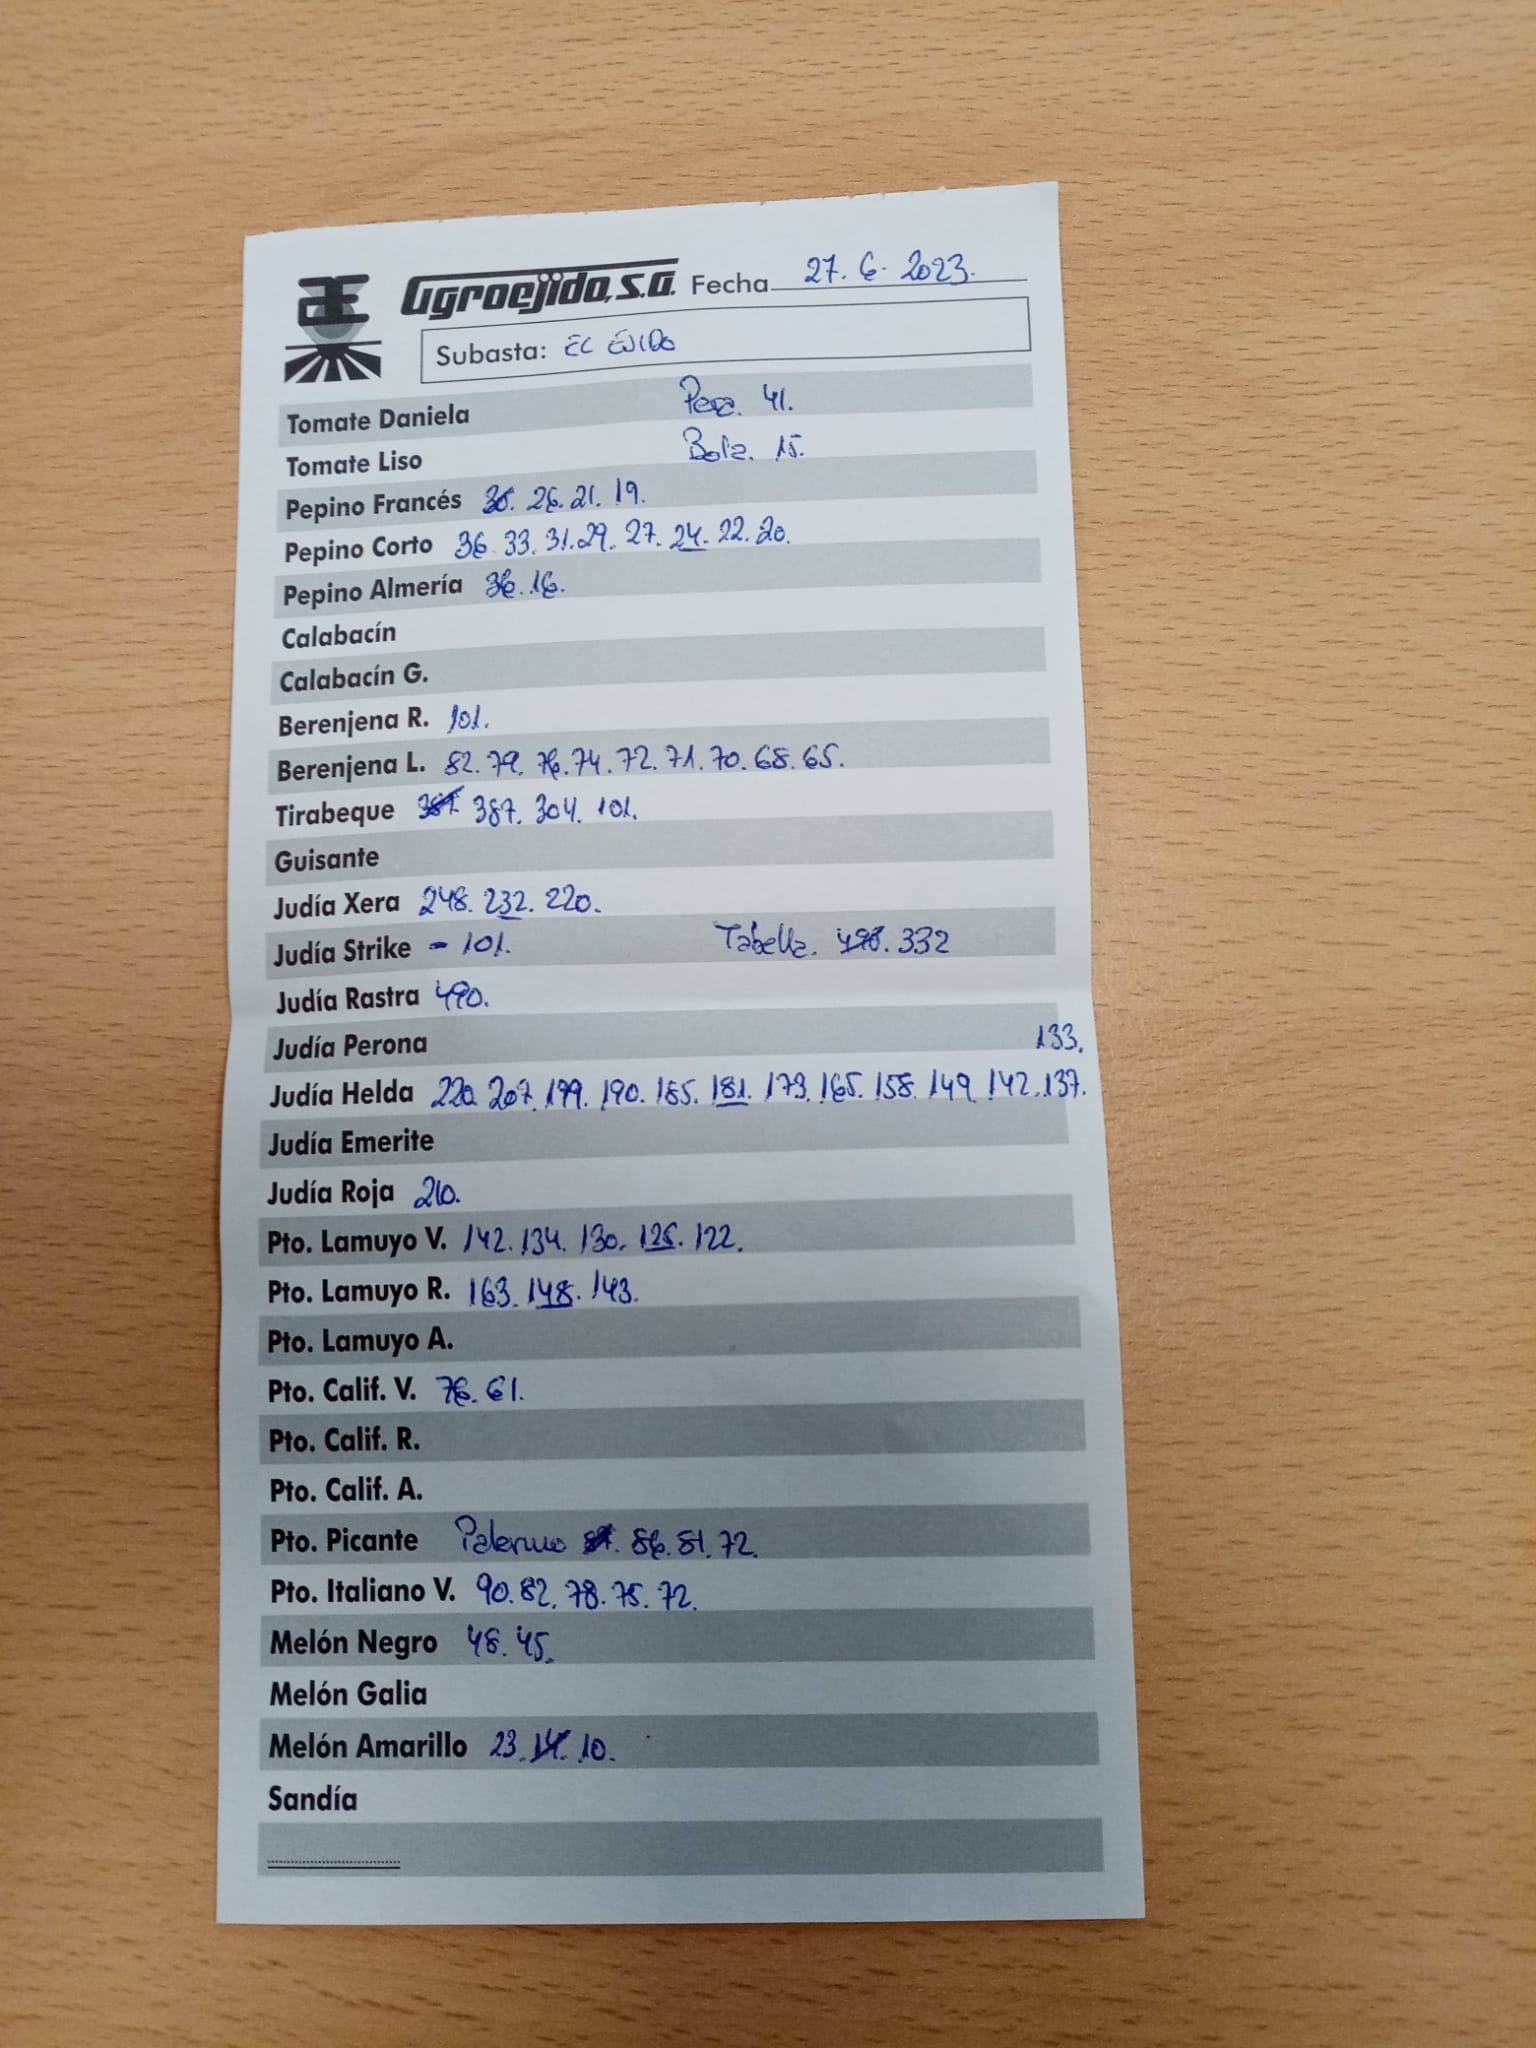 Æ Agroejido, S.A. Fecha 27. 6. 2023.
Subasta: EL EJIDO
Tomate Daniela Pera. 41.
Tomate Liso Bola. 15.
Pepino Francés 26. 21. 19.
Pepino Corto 36. 33. 31. 29. 27. 24. 22. 20.
Pepino Almería 36. 16.
Calabacín
Calabacín G.
Berenjena R. 101.
Berenjena L. 82. 79. 76. 74. 72. 71. 70. 68. 65.
Tirabeque 387. 304. 101.
Guisante
Judía Xera 248. 232. 220.
Judía Strike - 101. Tabella. 332
Judía Rastra 490.
Judía Perona 133.
Judía Helda 220. 207. 199. 190. 185. 181. 173. 165. 158. 149. 142. 137.
Judía Emerite
Judía Roja 210.
Pto. Lamuyo V. 142. 134. 130. 125. 122.
Pto. Lamuyo R. 163. 148. 143.
Pto. Lamuyo A.
Pto. Calif. V. 76. 61.
Pto. Calif. R.
Pto. Calif. A.
Pto. Picante Palermo 86. 81. 72.
Pto. Italiano V. 90. 82. 78. 75. 72.
Melón Negro 48. 45.
Melón Galia
Melón Amarillo 23. 14. 10.
Sandía